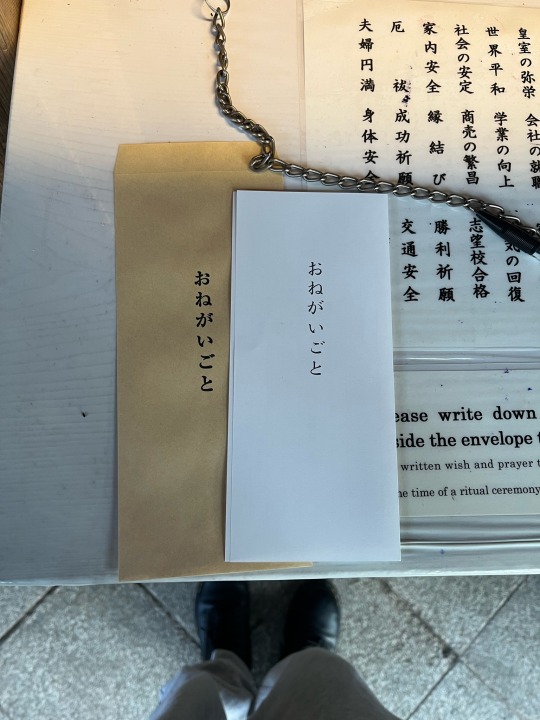 皇室の弥栄
世界平和
社会の安定
家内安全
厄祓
夫婦円満
会社の
学業の向上
商売の繁昌
縁結び
成功祈願
身体安全
の回復
志望校合格
勝利祈願
交通安全
おねがいごと
おねがいごと
write down
the envelope
written wish and prayer
time of a ritual ceremony